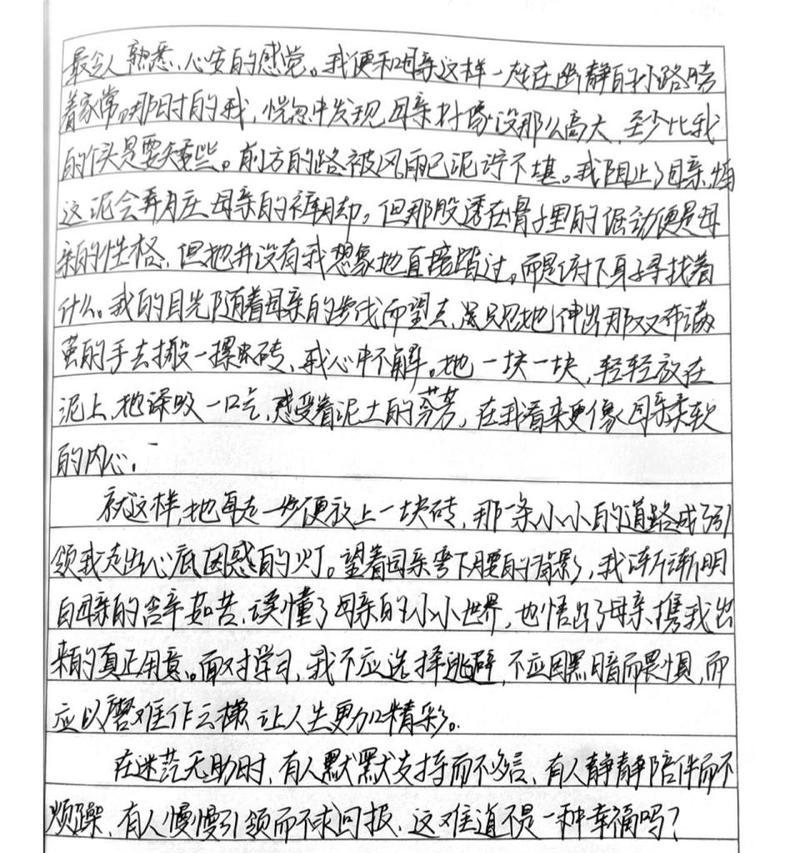 最令人熟悉、心安的感觉。我便和母亲这样一左在幽静的小路唠
着家常。那时的我,恍惚中发现母亲好像没那么高大,至少比我
的个头是要矮些。前方的路被风雨已泥泞不堪。我阻止了母亲,怕
这泥会弄脏母亲的裤脚。但那股透在骨子里的倔劲便是母
亲的性格,但她并没有我想象地直接踏过。而是俯下身子寻找着
什么。我的目光随着母亲的步伐而望去,只见她伸出那双布满
茧的手去搬一摞砖,我心中不解。她一块一块,轻轻放在
泥上,她深吸一口气,感受着泥土的芬芳,在我看来更像母亲柔软
的内心,
就这样,她每走一步便放上一块砖,那一条小小的道路成了引
领我走出心底困惑的灯。望着母亲弯下腰的背影,我渐渐明
白母亲的含辛茹苦,读懂了母亲的小小世界,也悟出了母亲携我出
来的真正用意。面对学习,我不应选择逃避,不应因黑暗而畏惧,而
应以磨难作云梯让人生更加精彩。
在迷茫无助时,有人默默支持而不多言,有人静静陪伴而不
烦躁,有人慢慢引领而不求回报,这难道不是一种幸福吗?